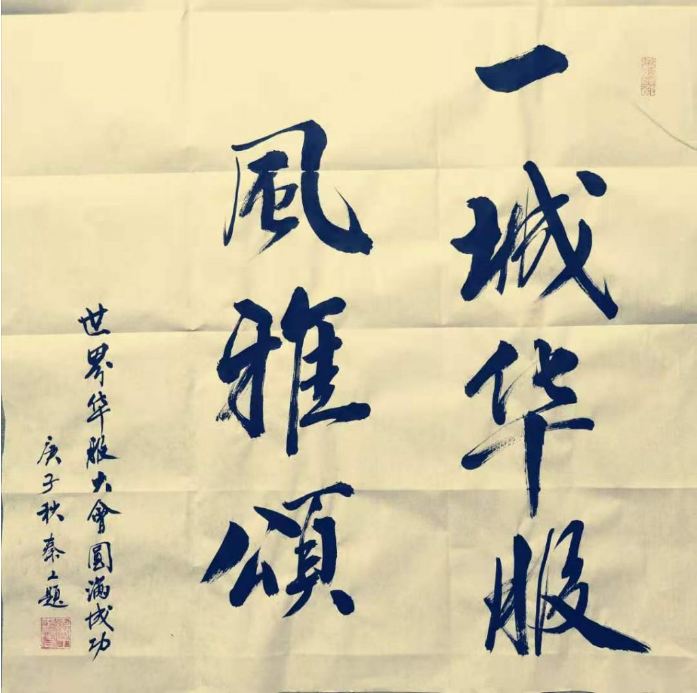 一城华服
風雅頌
世界华服大會圓满成功
庚子秋秦工題